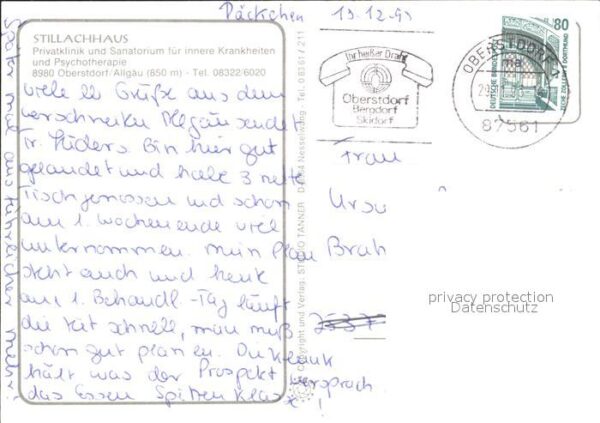 Päckchen 13.12.93
STILLACHHAUS
Privatklinik und Sanatorium für innere Krankheiten
und Psychotherapie
8980 Oberstdorf/Allgäu (850 m) - Tel. 08322/6020
viele Grüße aus dem
verschneiten Allgäu sendet
Fr. Lüders. Bin hier gut
gelandet und habe 3 nette
Tischgenossen und schon
am 1. Wochenende viel
unternommen. Mein Plan
steht auch und heute
am 1. Behandl.-Tag läuft
die Zeit schnell, man muß
schon gut planen. Die Klinik
hält was der Prospekt versprach
das Essen Spitzenklasse!
Später mal ausführlicher mehr!
Copyright und Verlag: STUDIO TANNER Nesselwang - Tel. 08361/211
Ihr heißer Draht
Oberstdorf
Bergdorf
Skidorf
OBERSTDORF
87561
80
DEUTSCHE BUNDESPOST
ZECHE ZOLLERN II DORTMUND
Frau
Ursu
Brah
privacy protection
Datenschutz